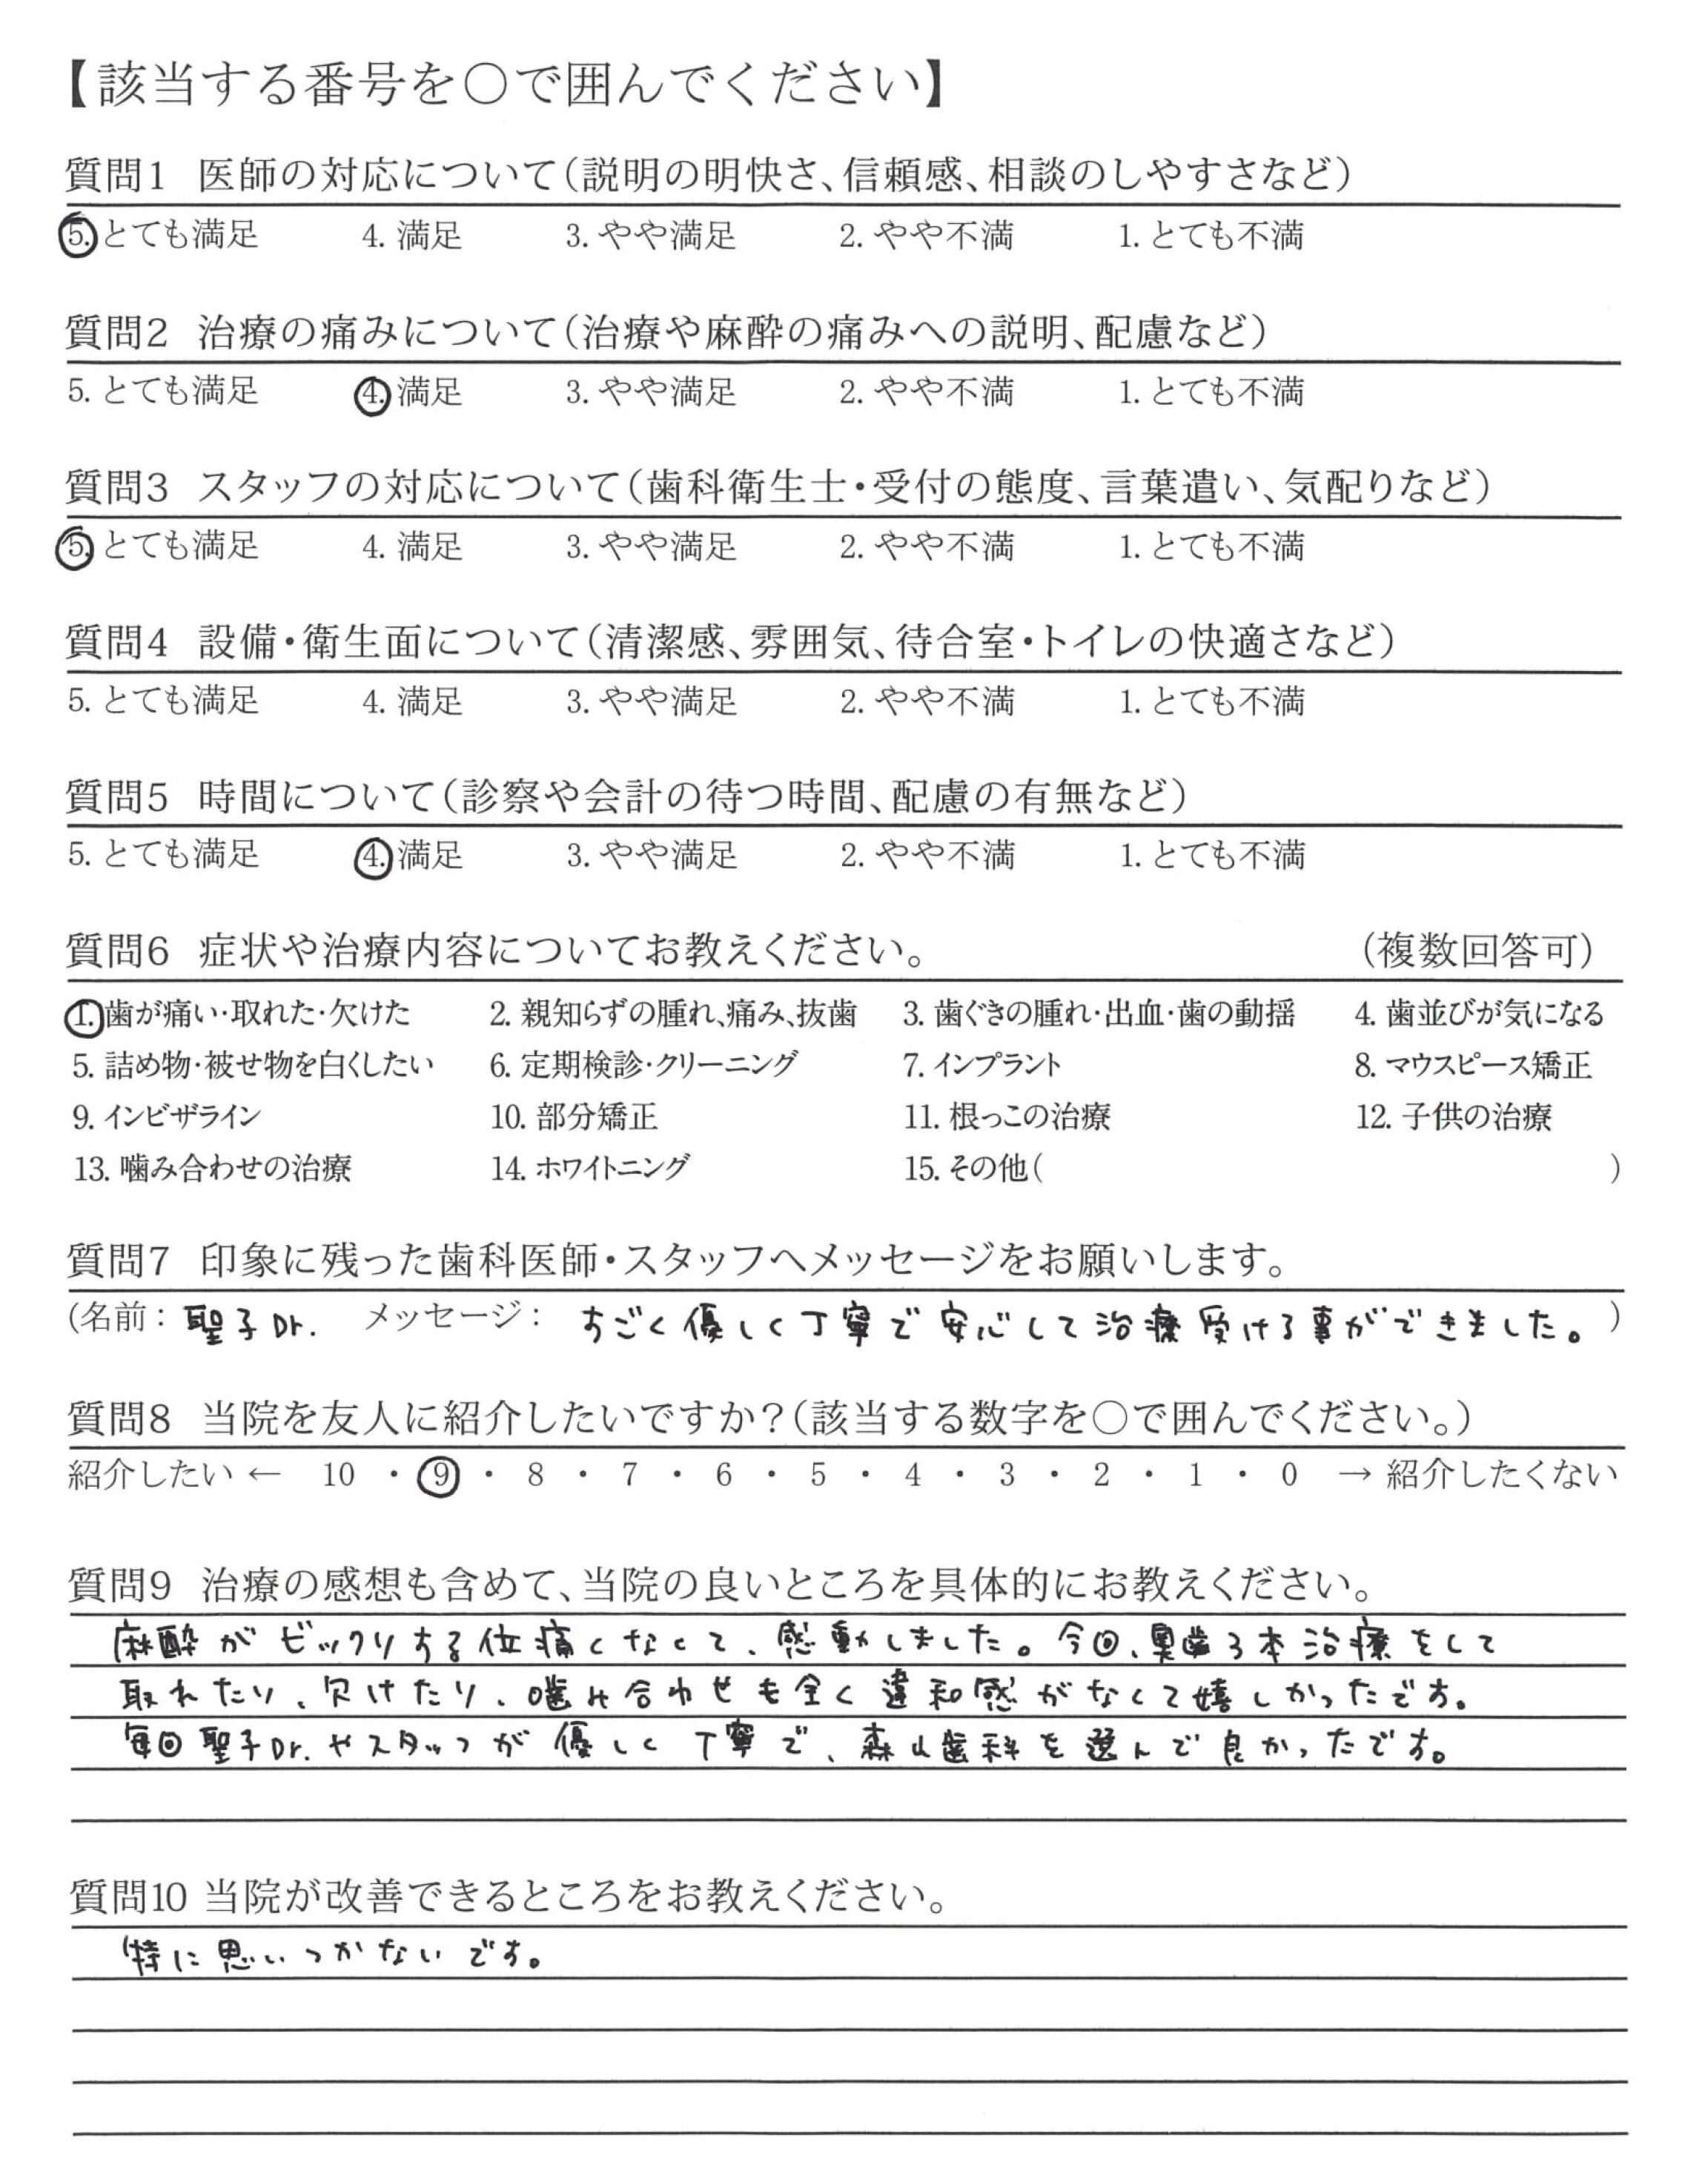 【該当する番号を○で囲んでください】
質問1 医師の対応について(説明の明快さ、信頼感、相談のしやすさなど)
5. とても満足 4. 満足 3. やや満足 2. やや不満 1. とても不満
質問2 治療の痛みについて(治療や麻酔の痛みへの説明、配慮など)
5. とても満足 4. 満足 3. やや満足 2. やや不満 1. とても不満
質問3 スタッフの対応について(歯科衛生士・受付の態度、言葉遣い、気配りなど)
5. とても満足 4. 満足 3. やや満足 2. やや不満 1. とても不満
質問4 設備・衛生面について(清潔感、雰囲気、待合室・トイレの快適さなど)
5. とても満足 4. 満足 3. やや満足 2. やや不満 1. とても不満
質問5 時間について(診察や会計の待つ時間、配慮の有無など)
5. とても満足 4. 満足 3. やや満足 2. やや不満 1. とても不満
質問6 症状や治療内容についてお教えください。 (複数回答可)
1. 歯が痛い・取れた・欠けた 2. 親知らずの腫れ、痛み、抜歯 3. 歯ぐきの腫れ・出血・歯の動揺 4. 歯並びが気になる
5. 詰め物・被せ物を白くしたい 6. 定期検診・クリーニング 7. インプラント 8. マウスピース矯正
9. インビザライン 10. 部分矯正 11. 根っこの治療 12. 子供の治療
13. 噛み合わせの治療 14. ホワイトニング 15. その他( )
質問7 印象に残った歯科医師・スタッフへメッセージをお願いします。
(名前: 聖子Dr. メッセージ: すごく優しく丁寧で安心して治療受ける事ができました。 )
質問8 当院を友人に紹介したいですか?(該当する数字を○で囲んでください。)
紹介したい ← 10 ・ 9 ・ 8 ・ 7 ・ 6 ・ 5 ・ 4 ・ 3 ・ 2 ・ 1 ・ 0 → 紹介したくない
質問9 治療の感想も含めて、当院の良いところを具体的にお教えください。
麻酔がビックリする位痛くなくて、感動しました。今回、奥歯3本治療をして
取れたり、欠けたり、噛み合わせも全く違和感がなくて嬉しかったです。
毎回聖子Dr.やスタッフが優しく丁寧で、森山歯科を選んで良かったです。
質問10 当院が改善できるところをお教えください。
特に思いつかないです。